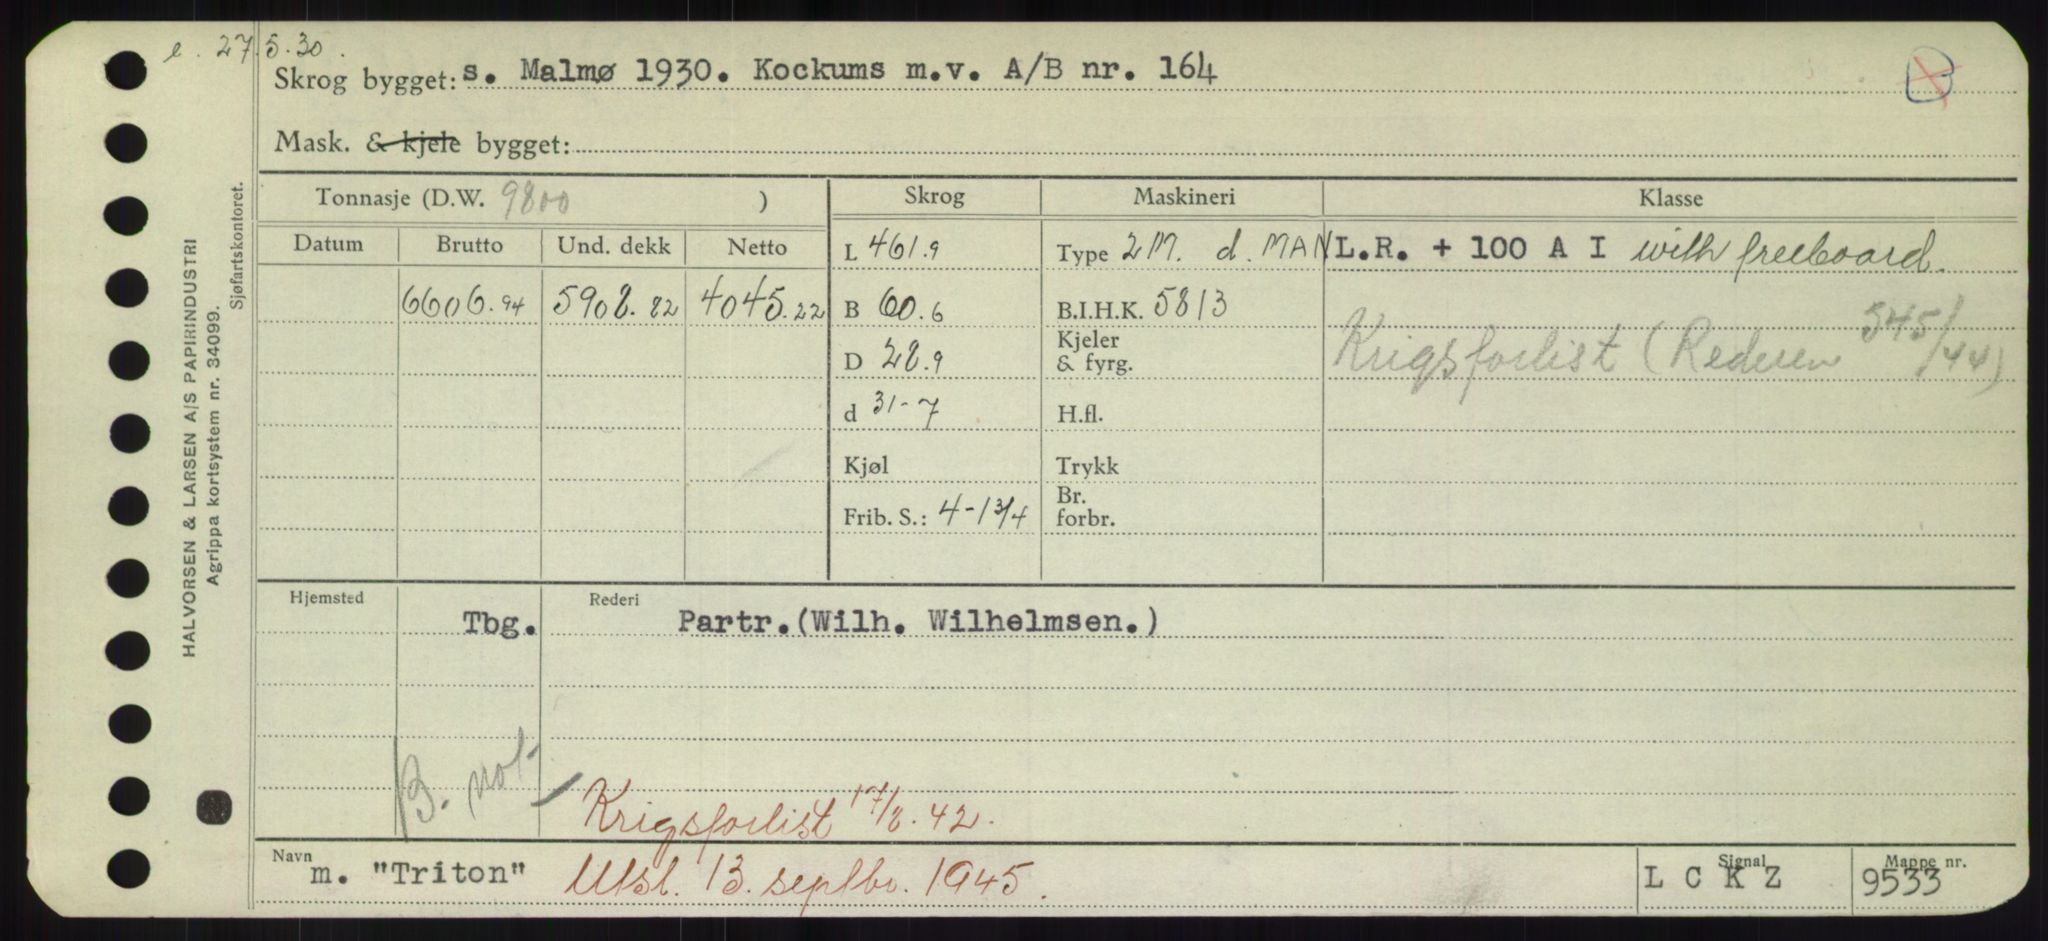 e. 27.5.30.
Skrog bygget: s. Malmø 1930. Kockums m.v. A/B nr. 164
B
Mask. & kjele bygget:
Tonnasje (D.W. 9800 )
Skrog
Maskineri
Klasse
Datum Brutto Und. dekk Netto
L 461.9
Type 2 M. d. MAN
L.R. + 100 A I with freeboard.
6606.94 5908.82 4045.22
B 60.6
B.I.H.K. 5813
Krigsforlist (Rederen 545/44)
D 28.9
Kjeler
& fyrg.
d 31-7
H.fl.
Kjøl
Trykk
Frib. S.: 4-1 3/4
Br.
forbr.
Hjemsted
Rederi
Tbg. Partr.(Wilh. Wilhelmsen.)
B. not-
Krigsforlist 17/8.42.
Navn
m. "Triton" Utsl. 13. septbr. 1945.
Signal
L C K Z
Mappe nr.
9533
HALVORSEN & LARSEN A/S PAPIRINDUSTRI
Agrippa kortsystem nr. 34099.
Sjøfartskontoret.